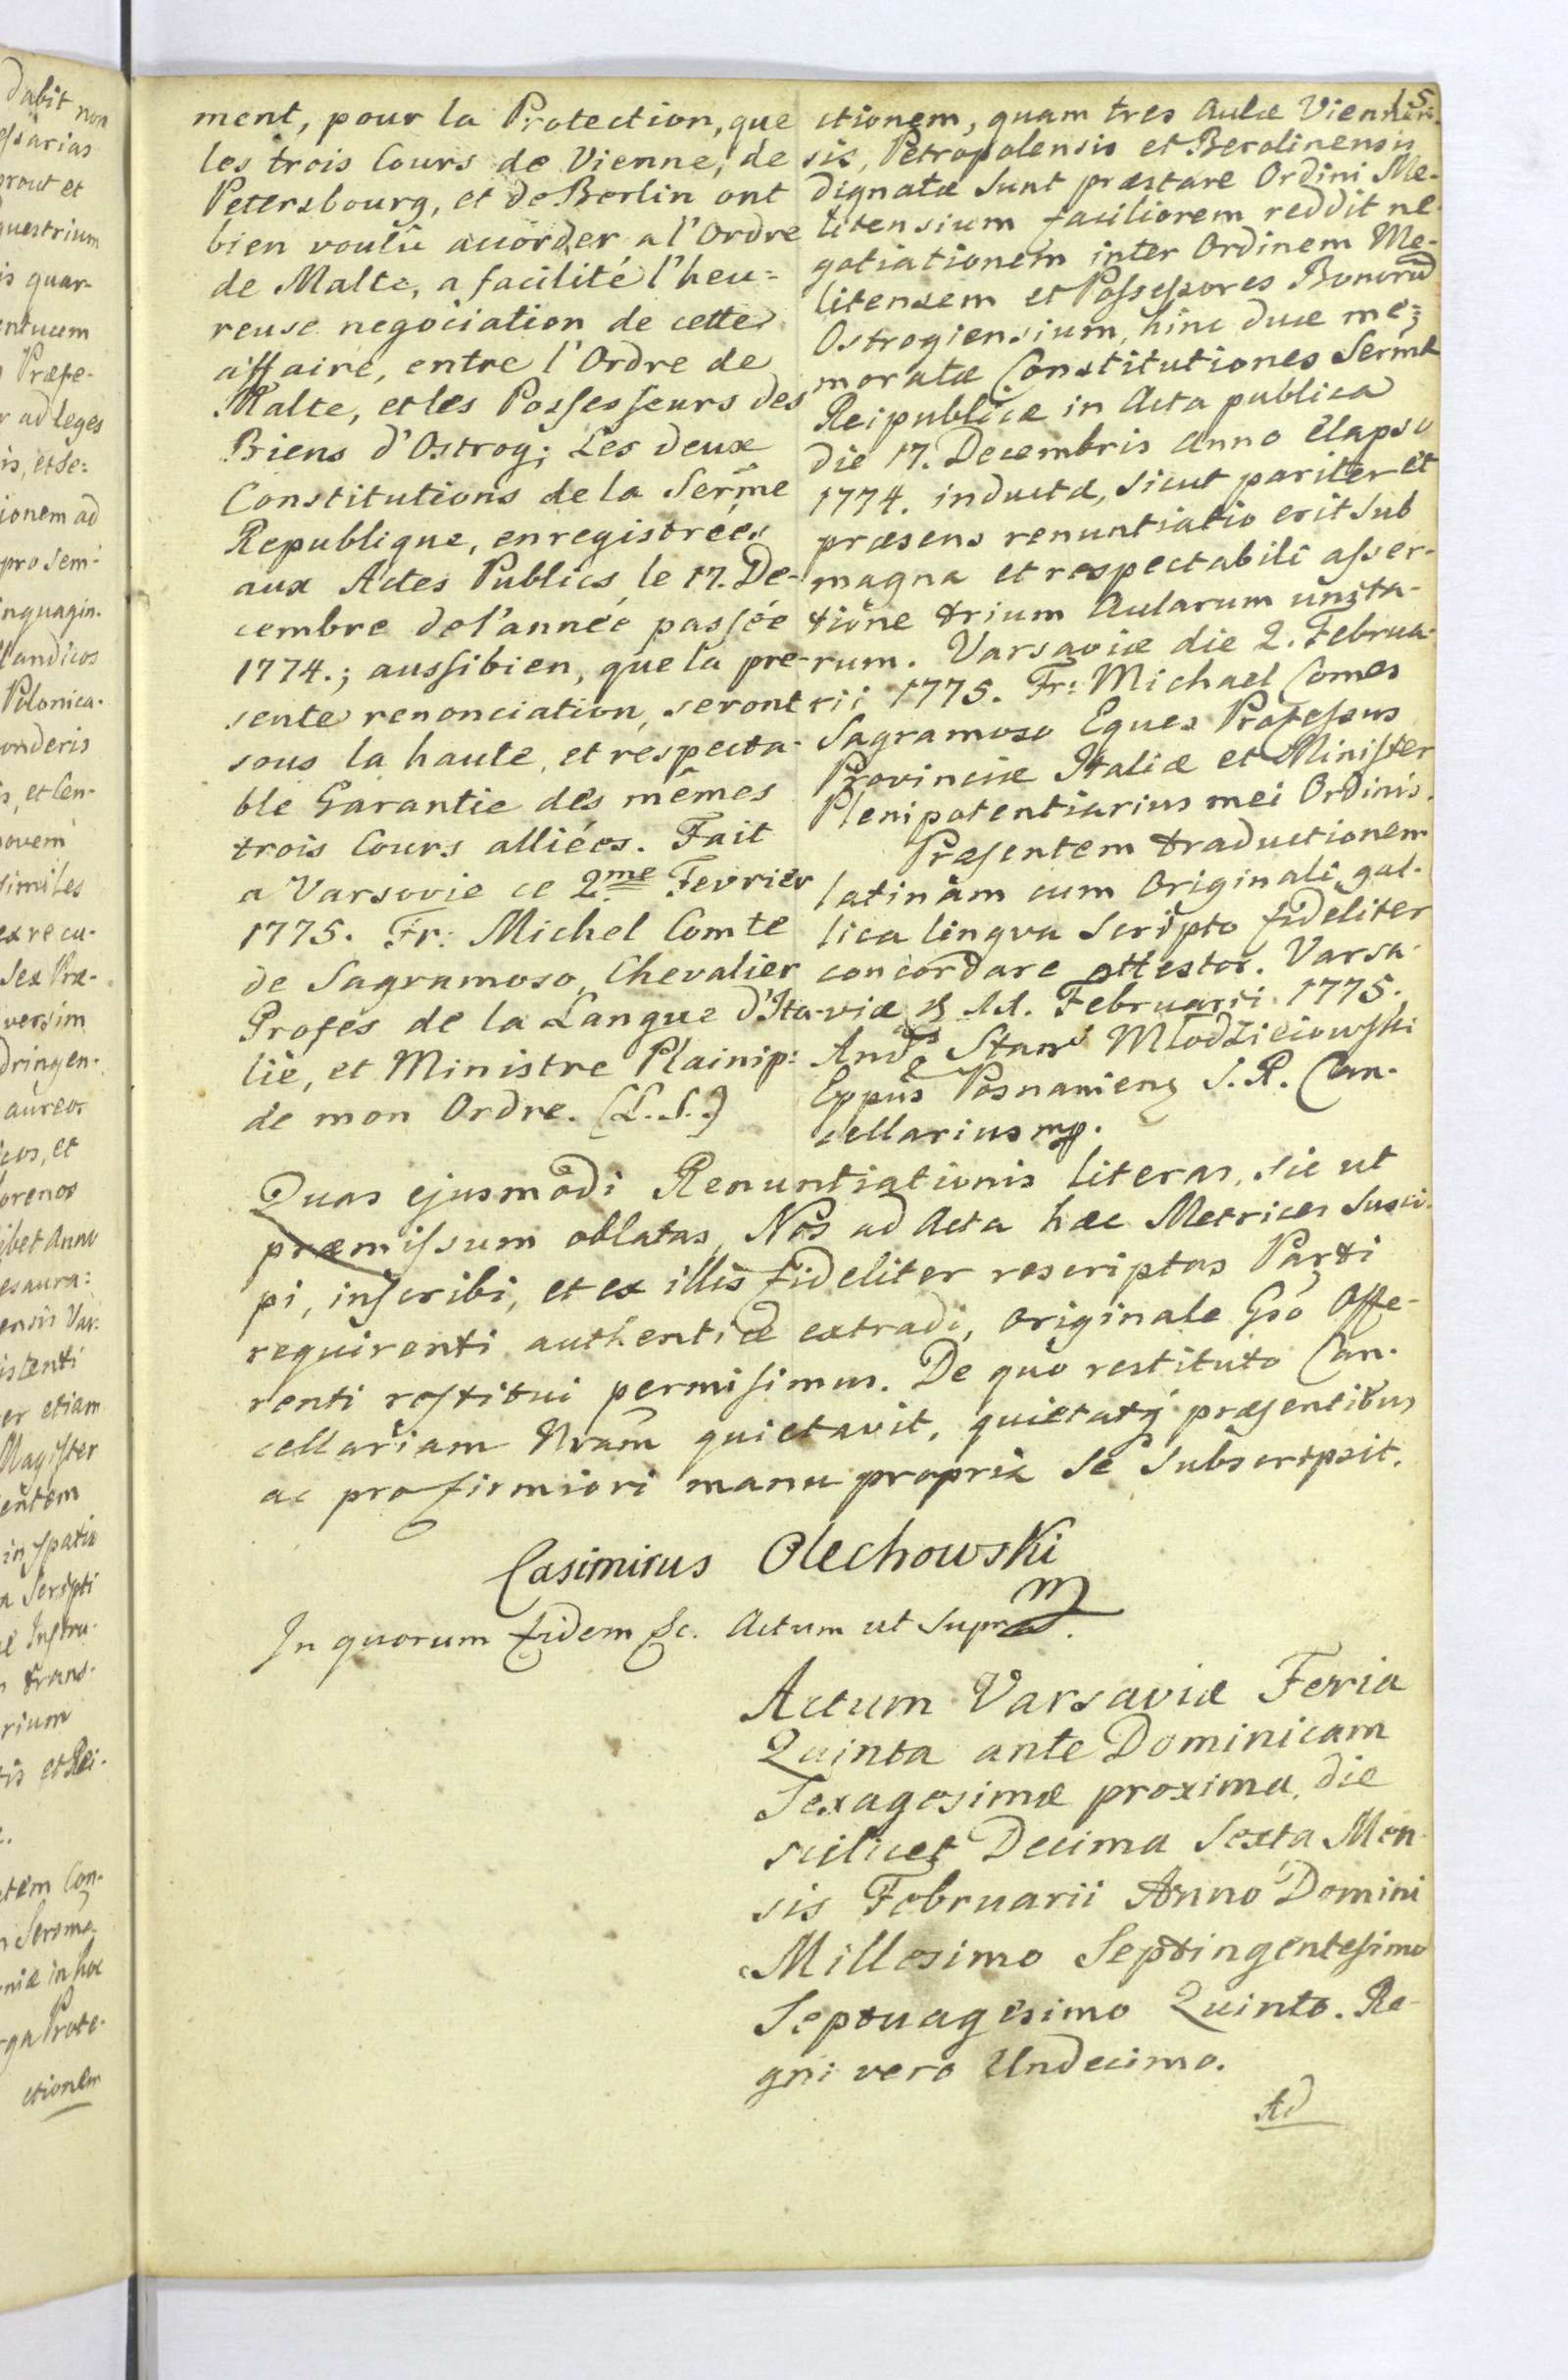 15
ment, pour la Protection, que
les trois Cours de Vienne, de
Petersbourg, et de Berlin ont
bien voulu accorder a l'Ordre
de Malte, a facilité l'heu=
reuse negociation de cette
affaire, entre l'Ordre de
Malte, et les Possesseurs des
Biens d'Ostrog; Les deux
Constitutions de la Serme
Republique, enregistrées
aux Actes Publics le 17. De-
cembre de l'année passée
1774.; aussibien, que la pre-
sente renonciation, seront
sous la haute, et respecta-
ble Garantie des mêmes
trois Cours alliées. Fait
a Varsovie ce 2me Fevrier
1775. Fr: Michel Comte
de Sagramoso, Chevalier
Profes de la Langue d'Ita-
lie, et Ministre Plainip:
de mon Ordre. (L.S.)
ctionem, quam tres Aulæ Viennen-
sis, Petropolensis et Berolinensis
dignatæ sunt præstare Ordini Me-
litensium faciliorem reddit ne-
gotiationem inter Ordinem Me-
litensem et Possessores Bonorũ
Ostrogiensium, hinc duæ me=
moratæ Constitutiones Sermæ
Reipublicæ in Acta publica
die 17. Decembris Anno elapso
1774. inductæ, sicut pariter et
præsens renuntiatio erit sub
magna et respectabili asser-
tione trium Aularum unita-
rum. Varsaviæ die 2. Februa-
rii 1775. Fr: Michael Comes
Sagramoso Eques Professus
Provinciæ Italiæ et Minister
Plenipotentiarius mei Ordinis.
Præsentem traductionem
latinam cum Originali gal-
lica lingva scripto fideliter
concordare attestor. Varsa-
viæ 11. Februarii 1775.
Ands Stans Młodzieiowski
Eppus Posnaniens S. R. Can-
cellarius mp.
Quas ejusmodi Renuntiationis literas, sic ut
præmissum oblatas, Nos ad Acta hæc Metrices susci-
pi, inscribi, et ex illis fideliter rescriptas Parti
requirenti authenticè extradi, originale Gso Offe-
renti restitui permisimus. De quo restituto Can-
cellariam Nram quietavit, quietatq præsentibus
ac pro firmiori manu propria se subscripsit.
Casimirus Olechowski
mp
In quorum fidem &c. Actum ut supra.
Actum Varsaviæ Feria
Quinta ante Dominicam
Sexagesimæ proxima, die
scilicet Decima Sexta Men-
sis Februarii Anno Domini
Millesimo Septingentesimo
Septuagesimo Quinto. Re-
gni vero Undecimo.
Ad